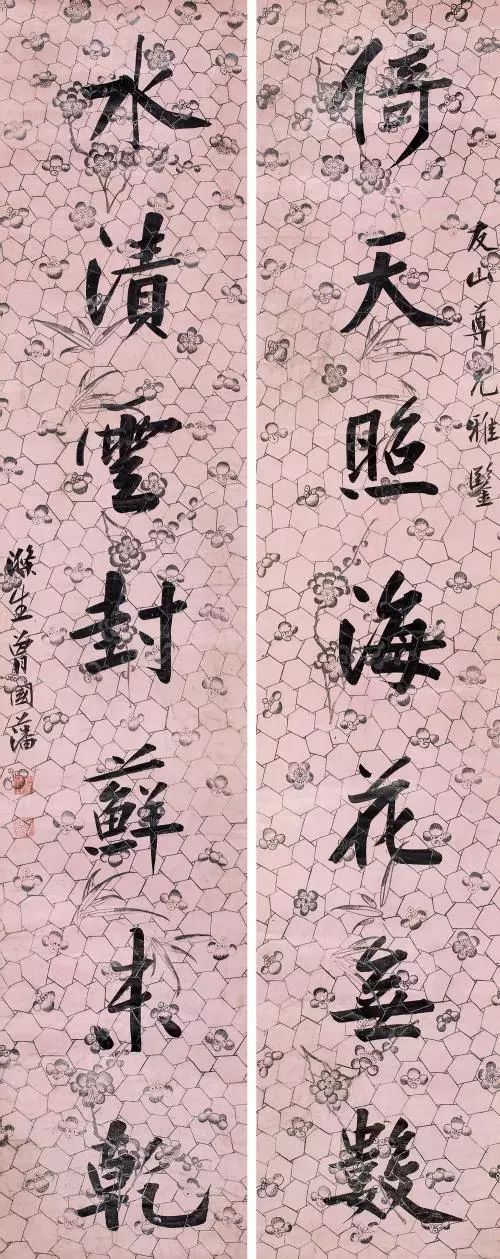 友山尊兄雅鑒
倚天照海花無數
水漬雲封蘚未乾
滌生曾國藩